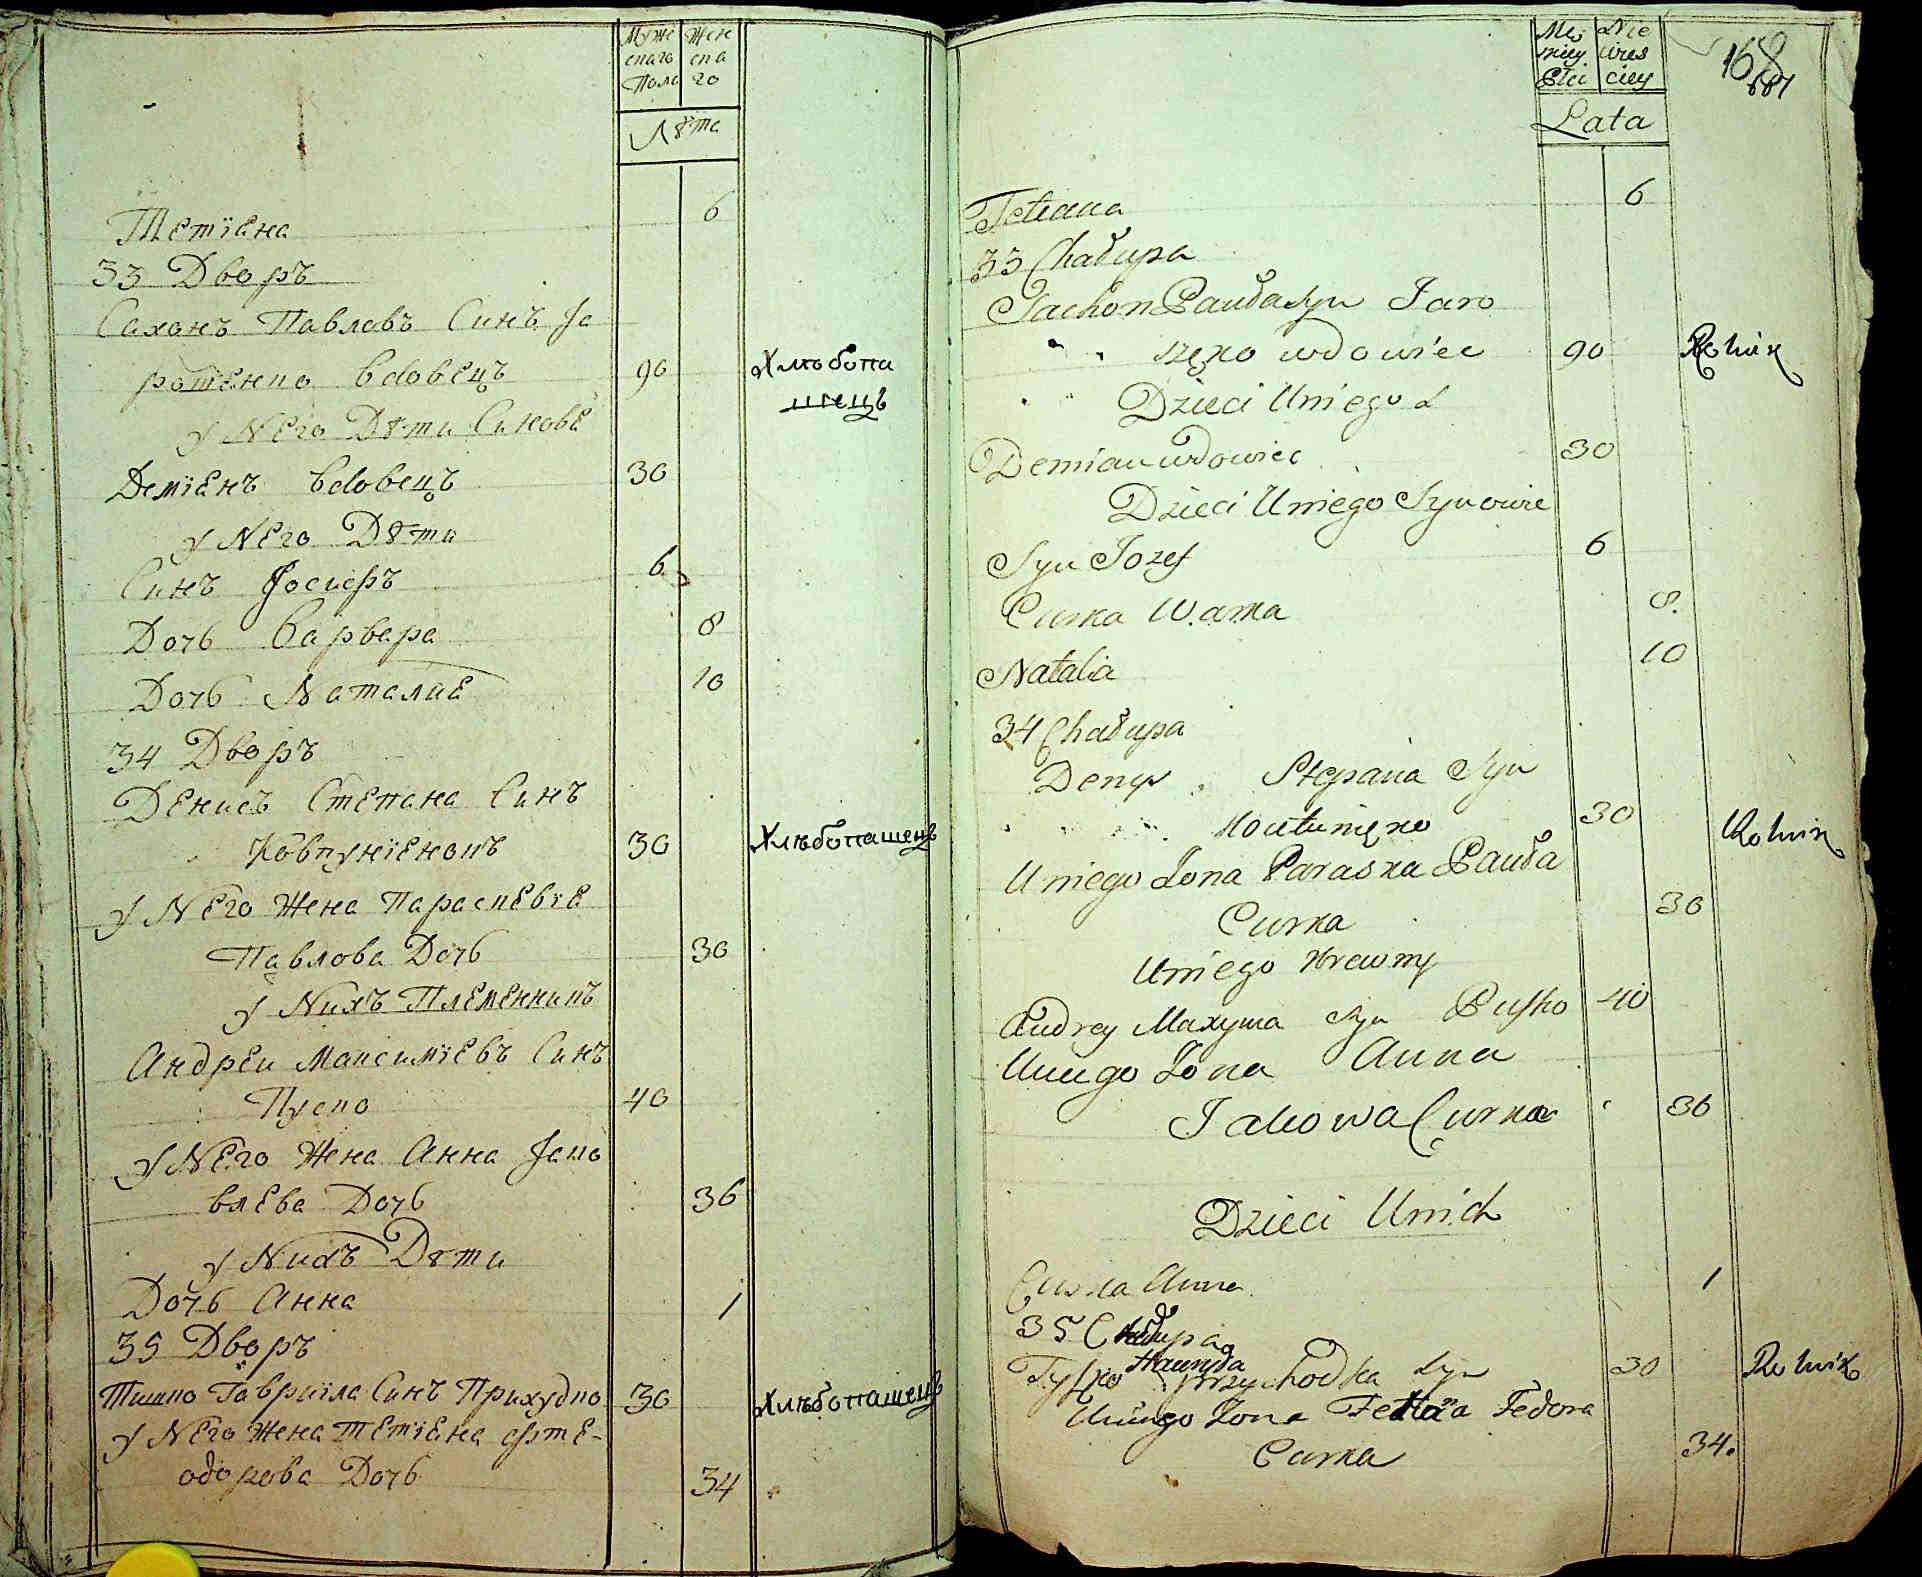 Муже
скаго
Полу
Жен
ска
го
Лѣта
Тетіана 6
33 Дворъ
Сахонъ Павловъ Синъ Ja
ротенко вдовецъ 90 Хлѣбопа
шецъ
у Него Дѣти Синове
Деміанъ вдовецъ 30
у Него Дѣти
Синъ Jосифъ 6
Дочь Варвара 8
Дочь Наталиа 10
34 Дворъ
Денисъ Степана Синъ
Ковтуніенокъ 30 Хлѣбопашецъ
у Него Жена Параскевіа
Павлова Дочь 30
у Нихъ Племенникъ
Андреи Максиміевъ Синъ
Пуско 40
у Него Жена Анна Jако
влева Дочь 36
у Нихъ Дѣти
Дочь Анна 1
35 Дворъ
Тишко Гавриіла Синъ Прихудко 30 Хлѣбопашецъ
у Него Жена Тетіана Фте-
одорова Дочь 34
Nie
wies
ciey
Lata
168
Tetiana 6
33 Chałupa
Sachon Pauła Syn Jaro
szęko wdowiec 90 Rolnik
Dzieci Uniego
Demian wdowiec 30
Dzieci Uniego Synowie
Syn Jozef 6
Curka 8.
Natalia 10
34 Chałupa
Denys Stepana Syn
Kowtunięko 30 Rolnik
Uniego Żona Paraska Pauła
Curka 30
Uniego Krewny
Andrey Maxyma Syn Pusko 40
Uniego Żona Anna
Jakowa Curka 36
Dzieci Unich
Curka Anna 1
35 Chałupa
Hauryła
Tyszko Przychodka Syn 30 Rolnik
Uniego Żona Fedora
Curka 34.